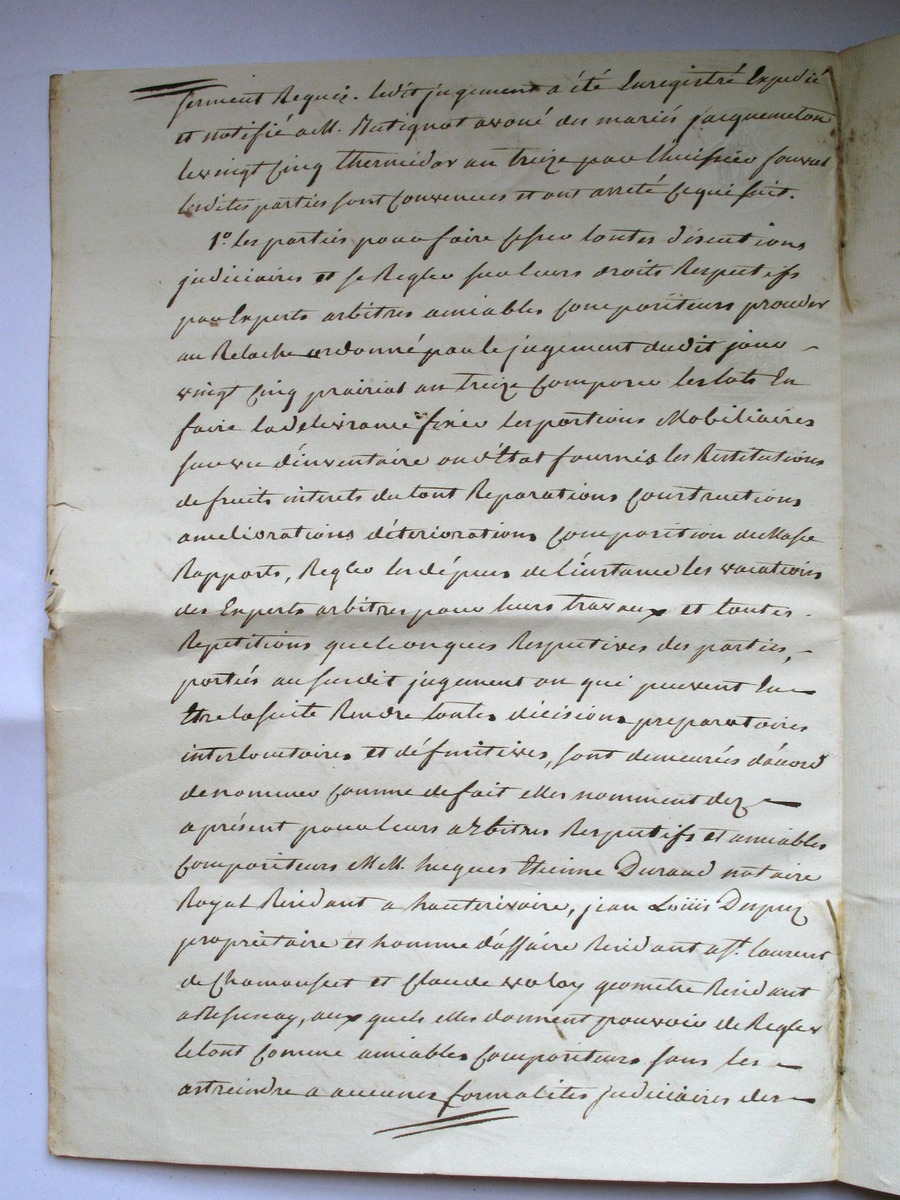 serment Requis. ledit jugement a été Enregistré Expedié
et notifié a M. Mutignat avoué des mariés jacquemeton
le vingt Cinq thermidor an treize par l'huissier
lesdites parties sont Convenues et ont arreté Ce qui suit.
1.º les parties pour faire Cesser toutes discutions
judiciaires et se Regler sur leurs droits Respectifs
par Experts arbitres amiables Compositeurs proceder
au Relache ordonné par le jugement dudit jour
vingt Cinq prairial an treize Composer les lots En
faire la delivrance fixer les portions Mobiliaires
sur vu d'inventaire ou d'Etat fournis les Restitutions
de fruits interets du tout Reparations Constructions
ameliorations déteriorations Composition de Masse
Rapports, Regler les dépens de l'instance les vacations
des Experts arbitres pour leurs travaux et toutes
Repetitions quelconques Respectives des parties,
portiés au susdit jugement ou qui peuvent En
Etre la suite Rendre toutes décisions preparatoires
interlocutoires et définitives, sont demeurées d'acord
de nommer Comme de fait elles nomment dez
a présent pour leurs arbitres Respectifs et amiables
Compositeurs MM. jacques Etienne Durand notaire
Royal Résidant a hauterivoire, jean Loüis Dupuy
propriétaire et homme d'affaire Residant a St. laurent
de Chamousset et Claude geometre Residant
a, aux quels elles donnent pouvoir de Regler
le tout Comme amiables Compositeurs sans les
astreindre a aucunes formalités judiciaires des